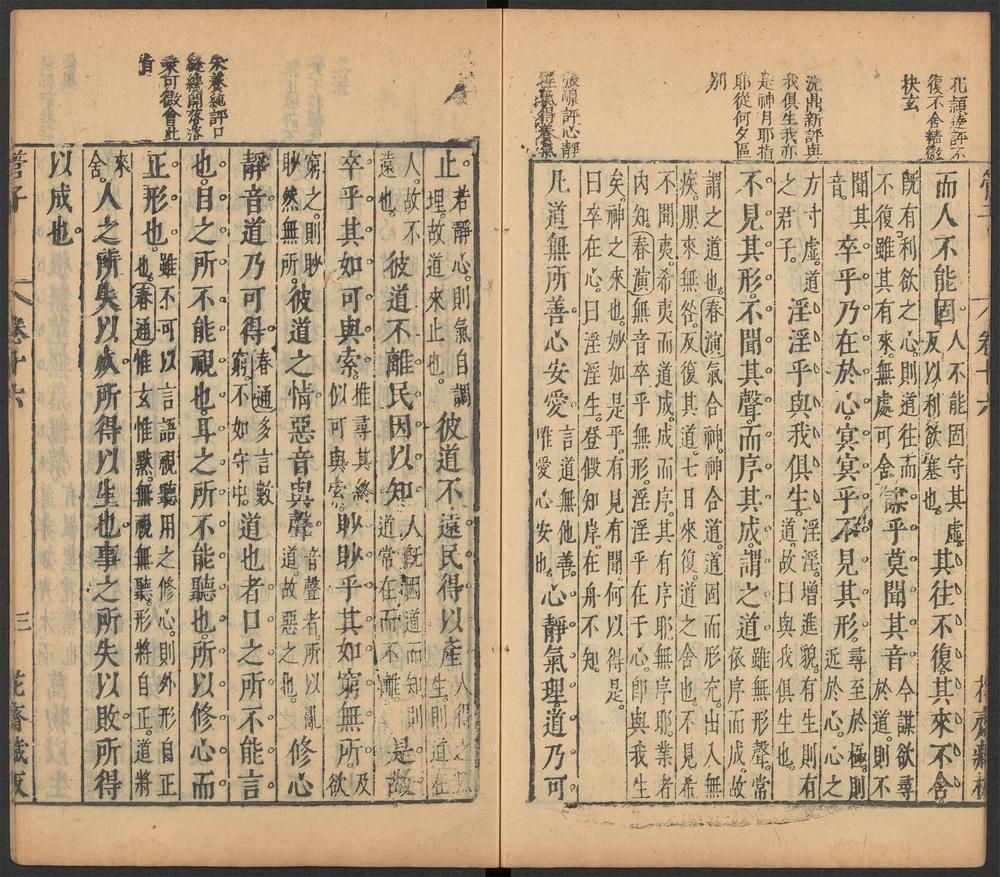 孔頴達評不
復不舍精微
抉玄
沈鼎新評與
我俱生我亦
是神月耶指
耶從何夕區
別
張嵲評心靜
而人不能固
人不能固守其虛
反以利欲塞也
其往不復其來不舍
旣有利欲之心則道往而
不復雖其有來無處可舍
謀乎莫聞其音
今謀欲尋
於道則不
聞其
音
卒乎乃在於心冥冥乎不見其形
尋至於極則
近於心心之
方寸虛道
之君子
淫淫乎與我俱生
淫淫增進貌有生則有
道故曰與我俱生也
不見其形不聞其聲而序其成謂之道
雖無形聲常
依序而成故
謂之道也春演氣合神神合道道固而形充出入無
疾朋來無咎反復其道七日來復道之舍也不見希
不聞夷希夷而道成成而序其有序耶無序耶業者
內知春演無音卒乎無形淫淫乎在于心卽與我生
矣神之來也妙如是乎有見有聞何以得是
曰卒在心曰淫淫生登假知岸在舟不知
凡道無所善心安愛
言道無他善
唯愛心安也
心靜氣理道乃可
朱養純評口
縫纔開落落
乘可微會此
旨
止
若靜心則氣自調
理故道來止也
彼道不遠民得以產
人得之以
生則道在
人故不
遠也
彼道不離民因以知
人旣因道而知則
道常在而不離
是故
卒乎其如可與索
推尋其終
似可與索
眇眇乎其如窮無所
欲及
窮之則眇
眇然無所
彼道之情惡音與聲
音聲者所以亂
道故惡之也
修心
靜音道乃可得
春通多言數
窮不如守中
道也者口之所不能言
也目之所不能視也耳之所不能聽也所以修心而
正形也
雖不可以言語視聽用之修心則外形自正
也春通惟玄惟默無視無聽形將自正道將
來
舍
人之所失以死所得以生也事之所失以敗所得
以成也
管子
卷十六
三
花齋藏板